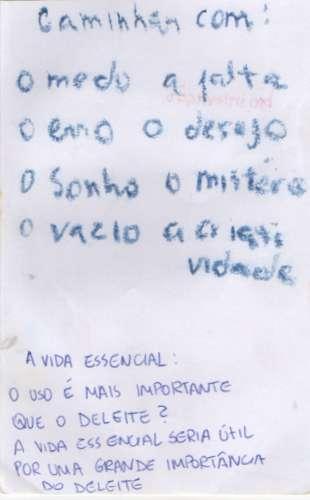 Caminhar com:
o medo a falta
o erro o desejo
o Sonho o mistério
o vazio a criati
vidade
A VIDA ESSENCIAL:
O USO É MAIS IMPORTANTE
QUE O DELEITE?
A VIDA ESSENCIAL SERIA ÚTIL
POR UMA GRANDE IMPORTÂNCIA
DO DELEITE